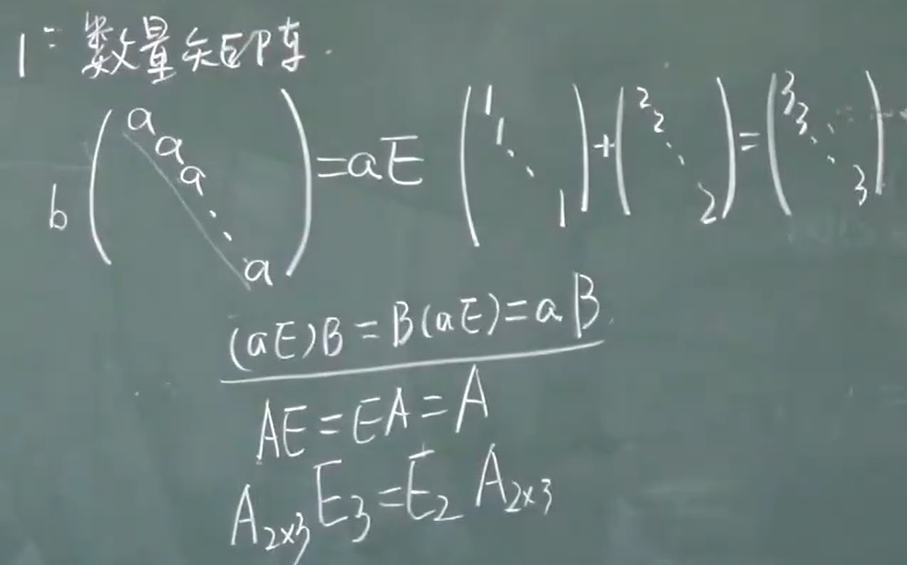 1: 数量矩阵.
b ( a a a ⋱ a ) = aE ( 1 1 ⋱ 1 ) + ( 2 2 ⋱ 2 ) = ( 3 3 ⋱ 3 )
(aE)B = B(aE) = aB.
AE = EA = A
A₂ₓ₃E₃ = E₂A₂ₓ₃